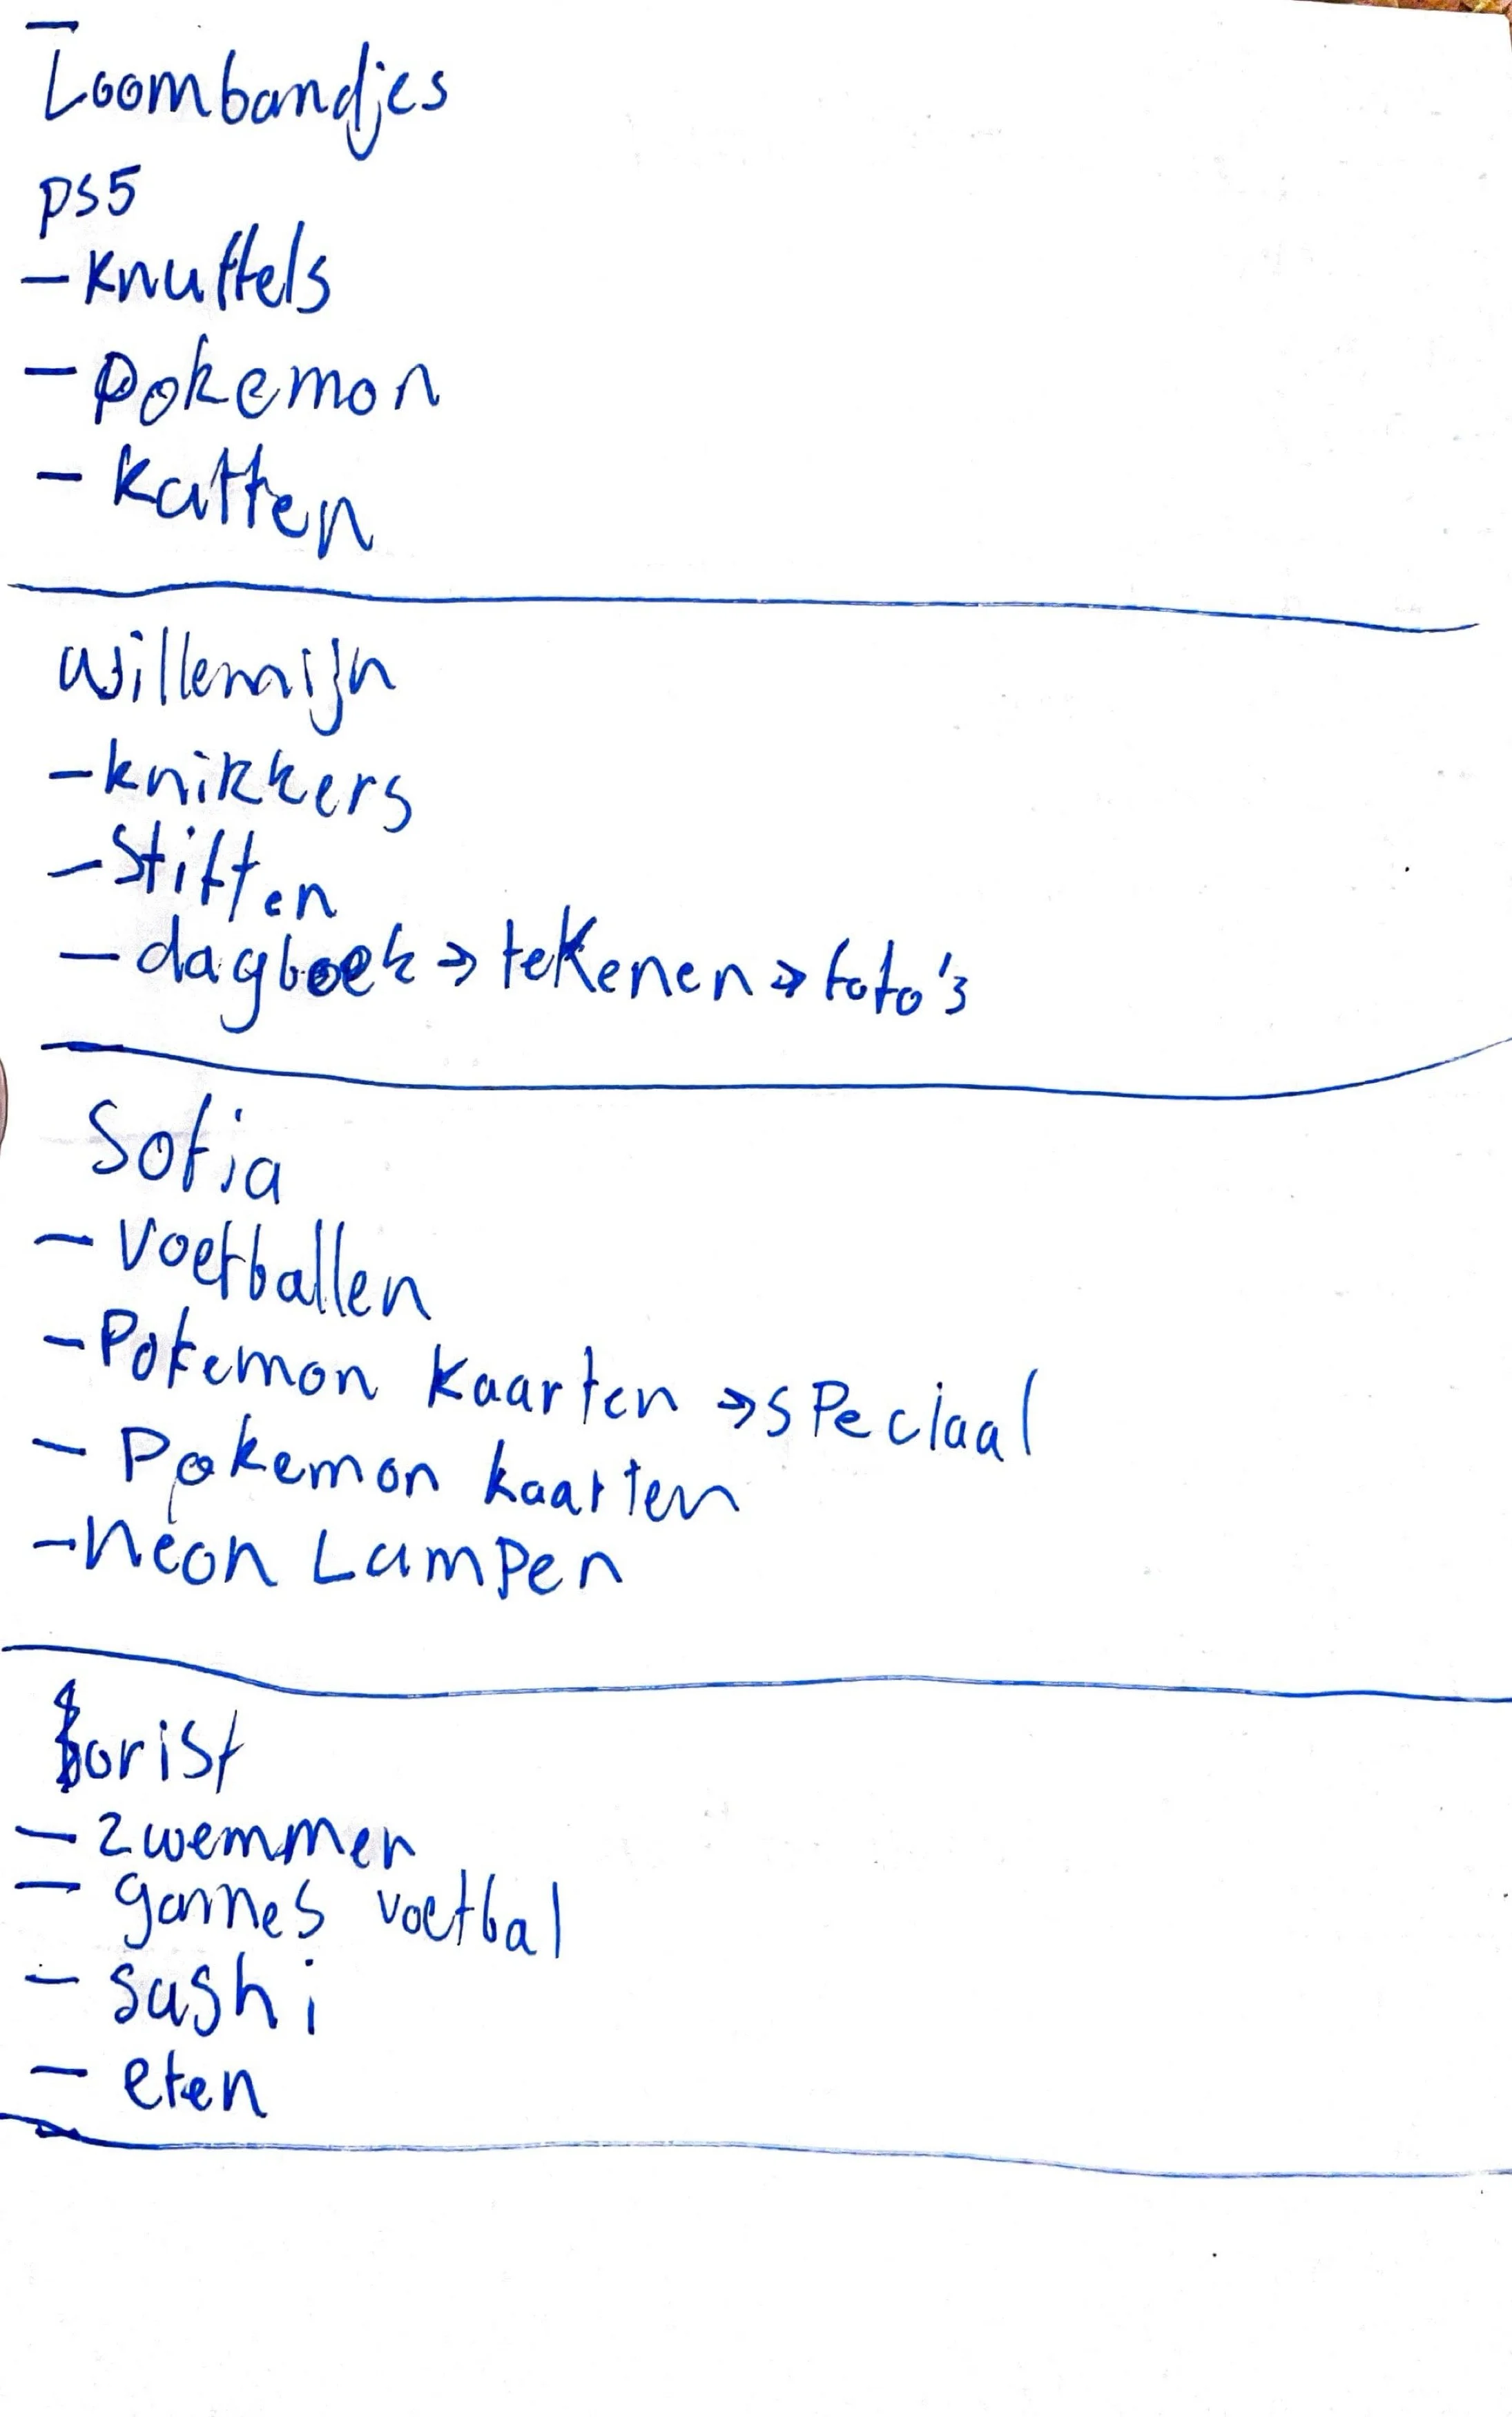 Loombandjes
ps5
- knuffels
- pokemon
- Katten
Willemijn
- knikkers
- Stiften
- dagboek → tekenen → foto's
Sofia
- Voetballen
- Pokemon kaarten → speciaal
- Pokemon kaarten
- Neon Lampen
- zwemmen
- games voetbal
- sushi
- eten